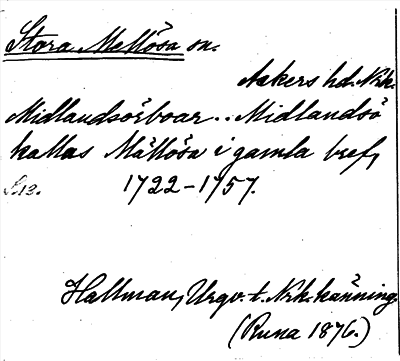 Stora Mellösa sn.
Askers hd. Nrk.
Midlandsöboar.. Midlandsö
kallas Mällösa i gamla bref,
S.13. 1722-1757.
Hallman, Urgv. t. Nrk. känning.
(Runa 1876.)